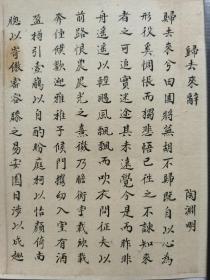 歸去來辭
陶淵明
歸去來兮田園將蕪胡不歸既自以心為
形役奚惆悵而獨悲悟已往之不諫知來
者之可追實迷途其未遠覺今是而昨非
舟遙遙以輕颺風飄飄而吹衣問征夫以
前路恨晨光之熹微乃瞻衡宇載欣載
奔僮僕歡迎稚子候門攜幼入室有酒
盈樽引壺觴以自酌眄庭柯以怡顏倚南
牕以寄傲審容膝之易安園日涉以成趣